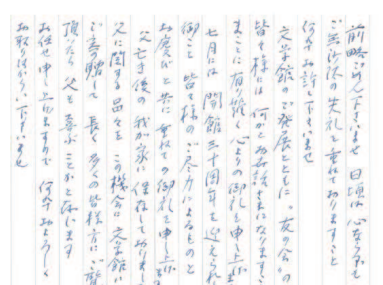 前略ごめん下さいませ 日頃は心ならずも
ご無沙汰の失礼 重ねておりますこと
何卒お許し下さいませ
文学館のご発展とともに "友の会"の
皆々様には 何かとお世話さまになりますこと
まことに有り難く 心よりの御礼を申し上げ
七月には 開館三十周年を迎えられ
御こと 皆々様のご尽力によるものと
お慶びと共に 重ねての御礼を申し上げ
父亡き後の 我が家に保存しておりまし
父に関する品々を この機会に 文学館に
ご寄贈して 長く 多くの皆様方に ご覧
頂けたら 父も喜ぶことかと存じます
お任せ申し上げますので 何卒およろしく
お取りはからい下さいませ